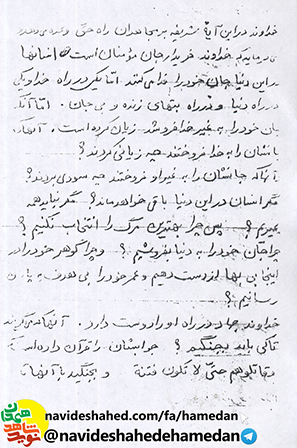 خداوند در این آیه شریفه به مجاهدان راه حق وعده می‌دهد
می‌فرماید که خداوند خریدار جان مؤمنان است انسانها
در این دنیا جان خود را فدا می‌کنند. اما یکی در راه خدا و یکی
در راه دنیا و در راه بتهای زنده و بی‌جان. اما آنکه
جان خود را به غیر خدا فروشد زیان کرده است. آنها که
جانشان را به خدا فروختند چه زیانی کردند؟
آنها که جانشان را به غیر او فروختند چه سودی بردند؟
مگر انسان در این دنیا باقی خواهد ماند؟ مگر نباید همه
بمیریم؟ پس چرا بهترین مرگ را انتخاب نکنیم؟
چرا جان خود را به دنیا بفروشیم؟ و چرا گوهر خود را در
اینجا بی بها از دست دهیم و عمر خود را بی هدف به پایان
رسانیم؟
خداوند جهاد در راه او را دوست دارد. آنها که می‌گویند
تا کی باید بجنگیم؟ جوابشان را قرآن داده است که
و قاتلوهم حتی لا تکون فتنة و بجنگید با آنها تا
navideshahed.com/fa/hamedan
@navideshahedehamedan
نوید شاهد همدان